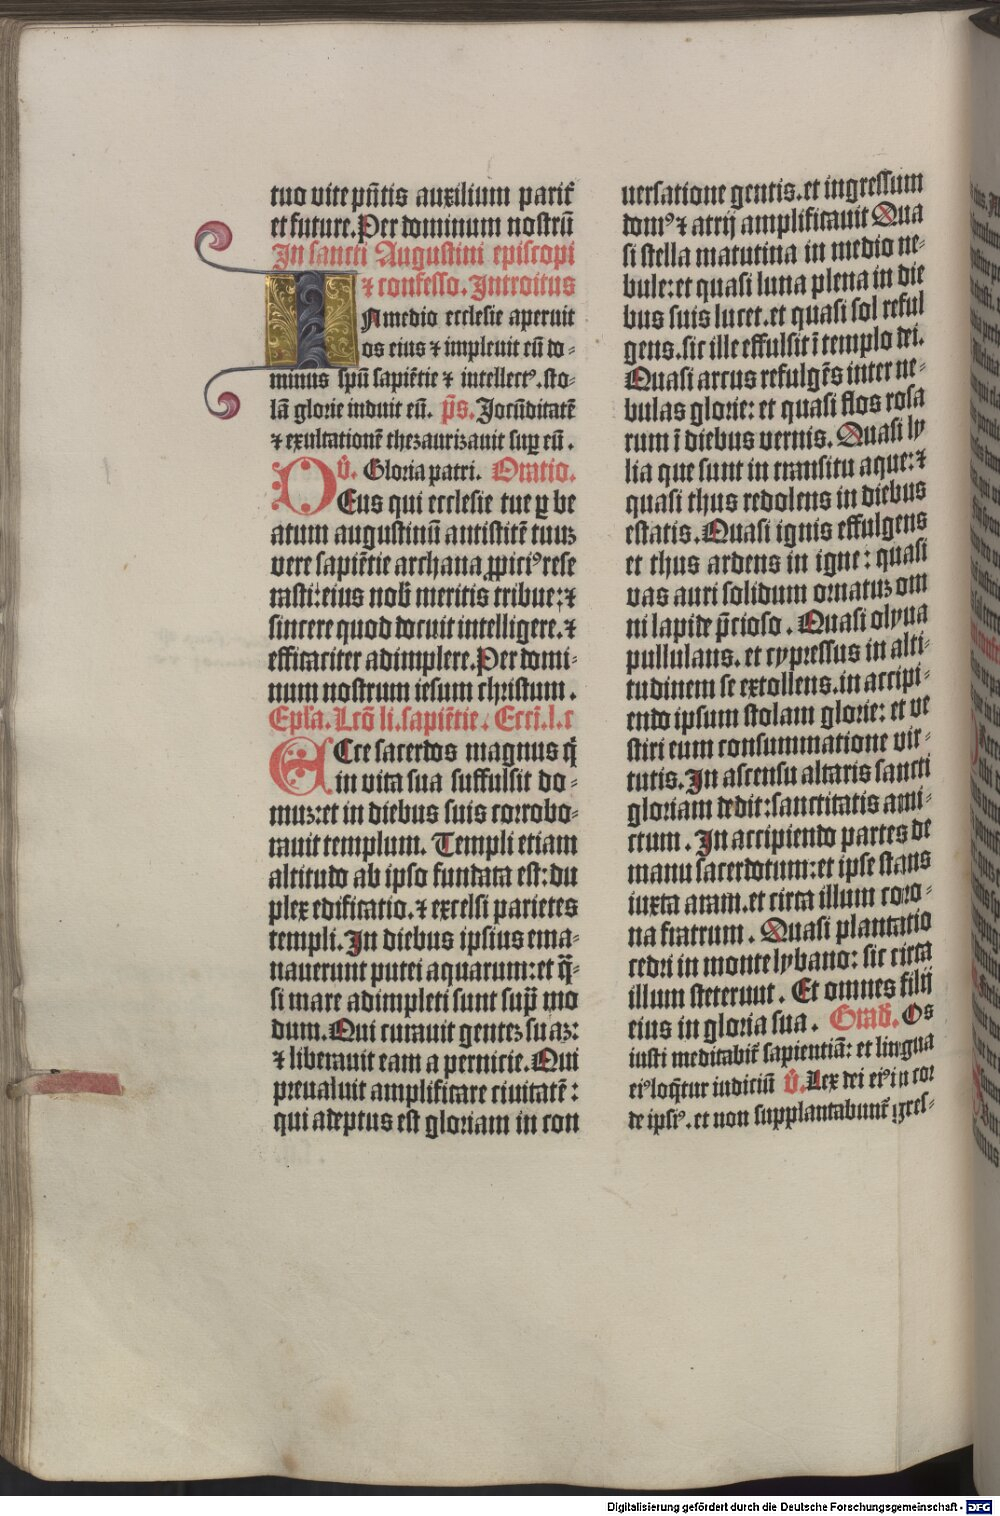 tuo vite pñtis auxilium parit᷑
et future. Per dominum nostrũ
In sancti Augustini episcopi
⁊ confesso. Introitus
IN medio ecclesie aperuit
os eius ⁊ impleuit eũ do-
minus spũ sapiẽtie ⁊ intellectꝰ. sto-
lã glorie induit eũ. p̃s. Jocũditatẽ
⁊ exultationẽ thezaurizauit suꝑ eũ.
v̉. Gloria patri. Oratio.
DEus qui ecclesie tue ꝑ be
atum augustinũ antistitẽ tuuꝫ
vere sapiẽtie archana ꝓpiciꝰ rese
rasti: eius nob̃ meritis tribue: ⁊
sincere quod docuit intelligere. ⁊
efficaciter adimplere. Per domi-
num nostrum iesum christum.
Epl̃a. Lcõ li. sapiẽtie. Ecci. l. c
ECce sacerdos magnus q̃
in vita sua suffulsit do-
muꝫ: et in diebus suis corrobo-
rauit templum. Templi etiam
altitudo ab ipso fundata est: du
plex edificatio. ⁊ excelsi parietes
templi. In diebus ipsius ema-
nauerunt putei aquarum: et q̃-
si mare adimpleti sunt sup̃ mo
dum. Qui curauit genteꝫ suaꝫ:
⁊ liberauit eam a pernicie. Qui
preualuit amplificare ciuitatẽ:
qui adeptus est gloriam in con
uersatione gentis. et ingressum
domꝰ ⁊ atrij amplificauit Qua
si stella matutina in medio ne-
bule: et quasi luna plena in die
bus suis lucet. et quasi sol reful
gens. sic ille effulsit ĩ templo dei.
Quasi arcus refulgẽs inter ne-
bulas glorie: et quasi flos rosa
rum ĩ diebus vernis. Quasi ly
lia que sunt in transitu aque: ⁊
quasi thus redolens in diebus
estatis. Quasi ignis effulgens
et thus ardens in igne: quasi
vas auri solidum ornatuꝫ om
ni lapide p̃cioso. Quasi olyua
pullulans. et cypressus in alti-
tudinem se extollens. in accipi-
endo ipsum stolam glorie: et ve
stiri eum consummatione vir-
tutis. In ascensu altaris sancti
gloriam dedit: sanctitatis ami-
ctum. In accipiendo partes de
manu sacerdotum: et ipse stans
iuxta aram. et circa illum coro-
na fratrum. Quasi plantatio
cedri in monte lybano: sic circa
illum steterunt. Et omnes filij
eius in gloria sua. Grad̃. Os
iusti meditabit᷑ sapientiã: et lingua
eiꝰ loq̃tur iudiciũ v̉. Lex dei eiꝰ in cor
de ipsiꝰ. et non supplantabunt᷑ gres-
Digitalisierung gefördert durch die Deutsche Forschungsgemeinschaft - DFG